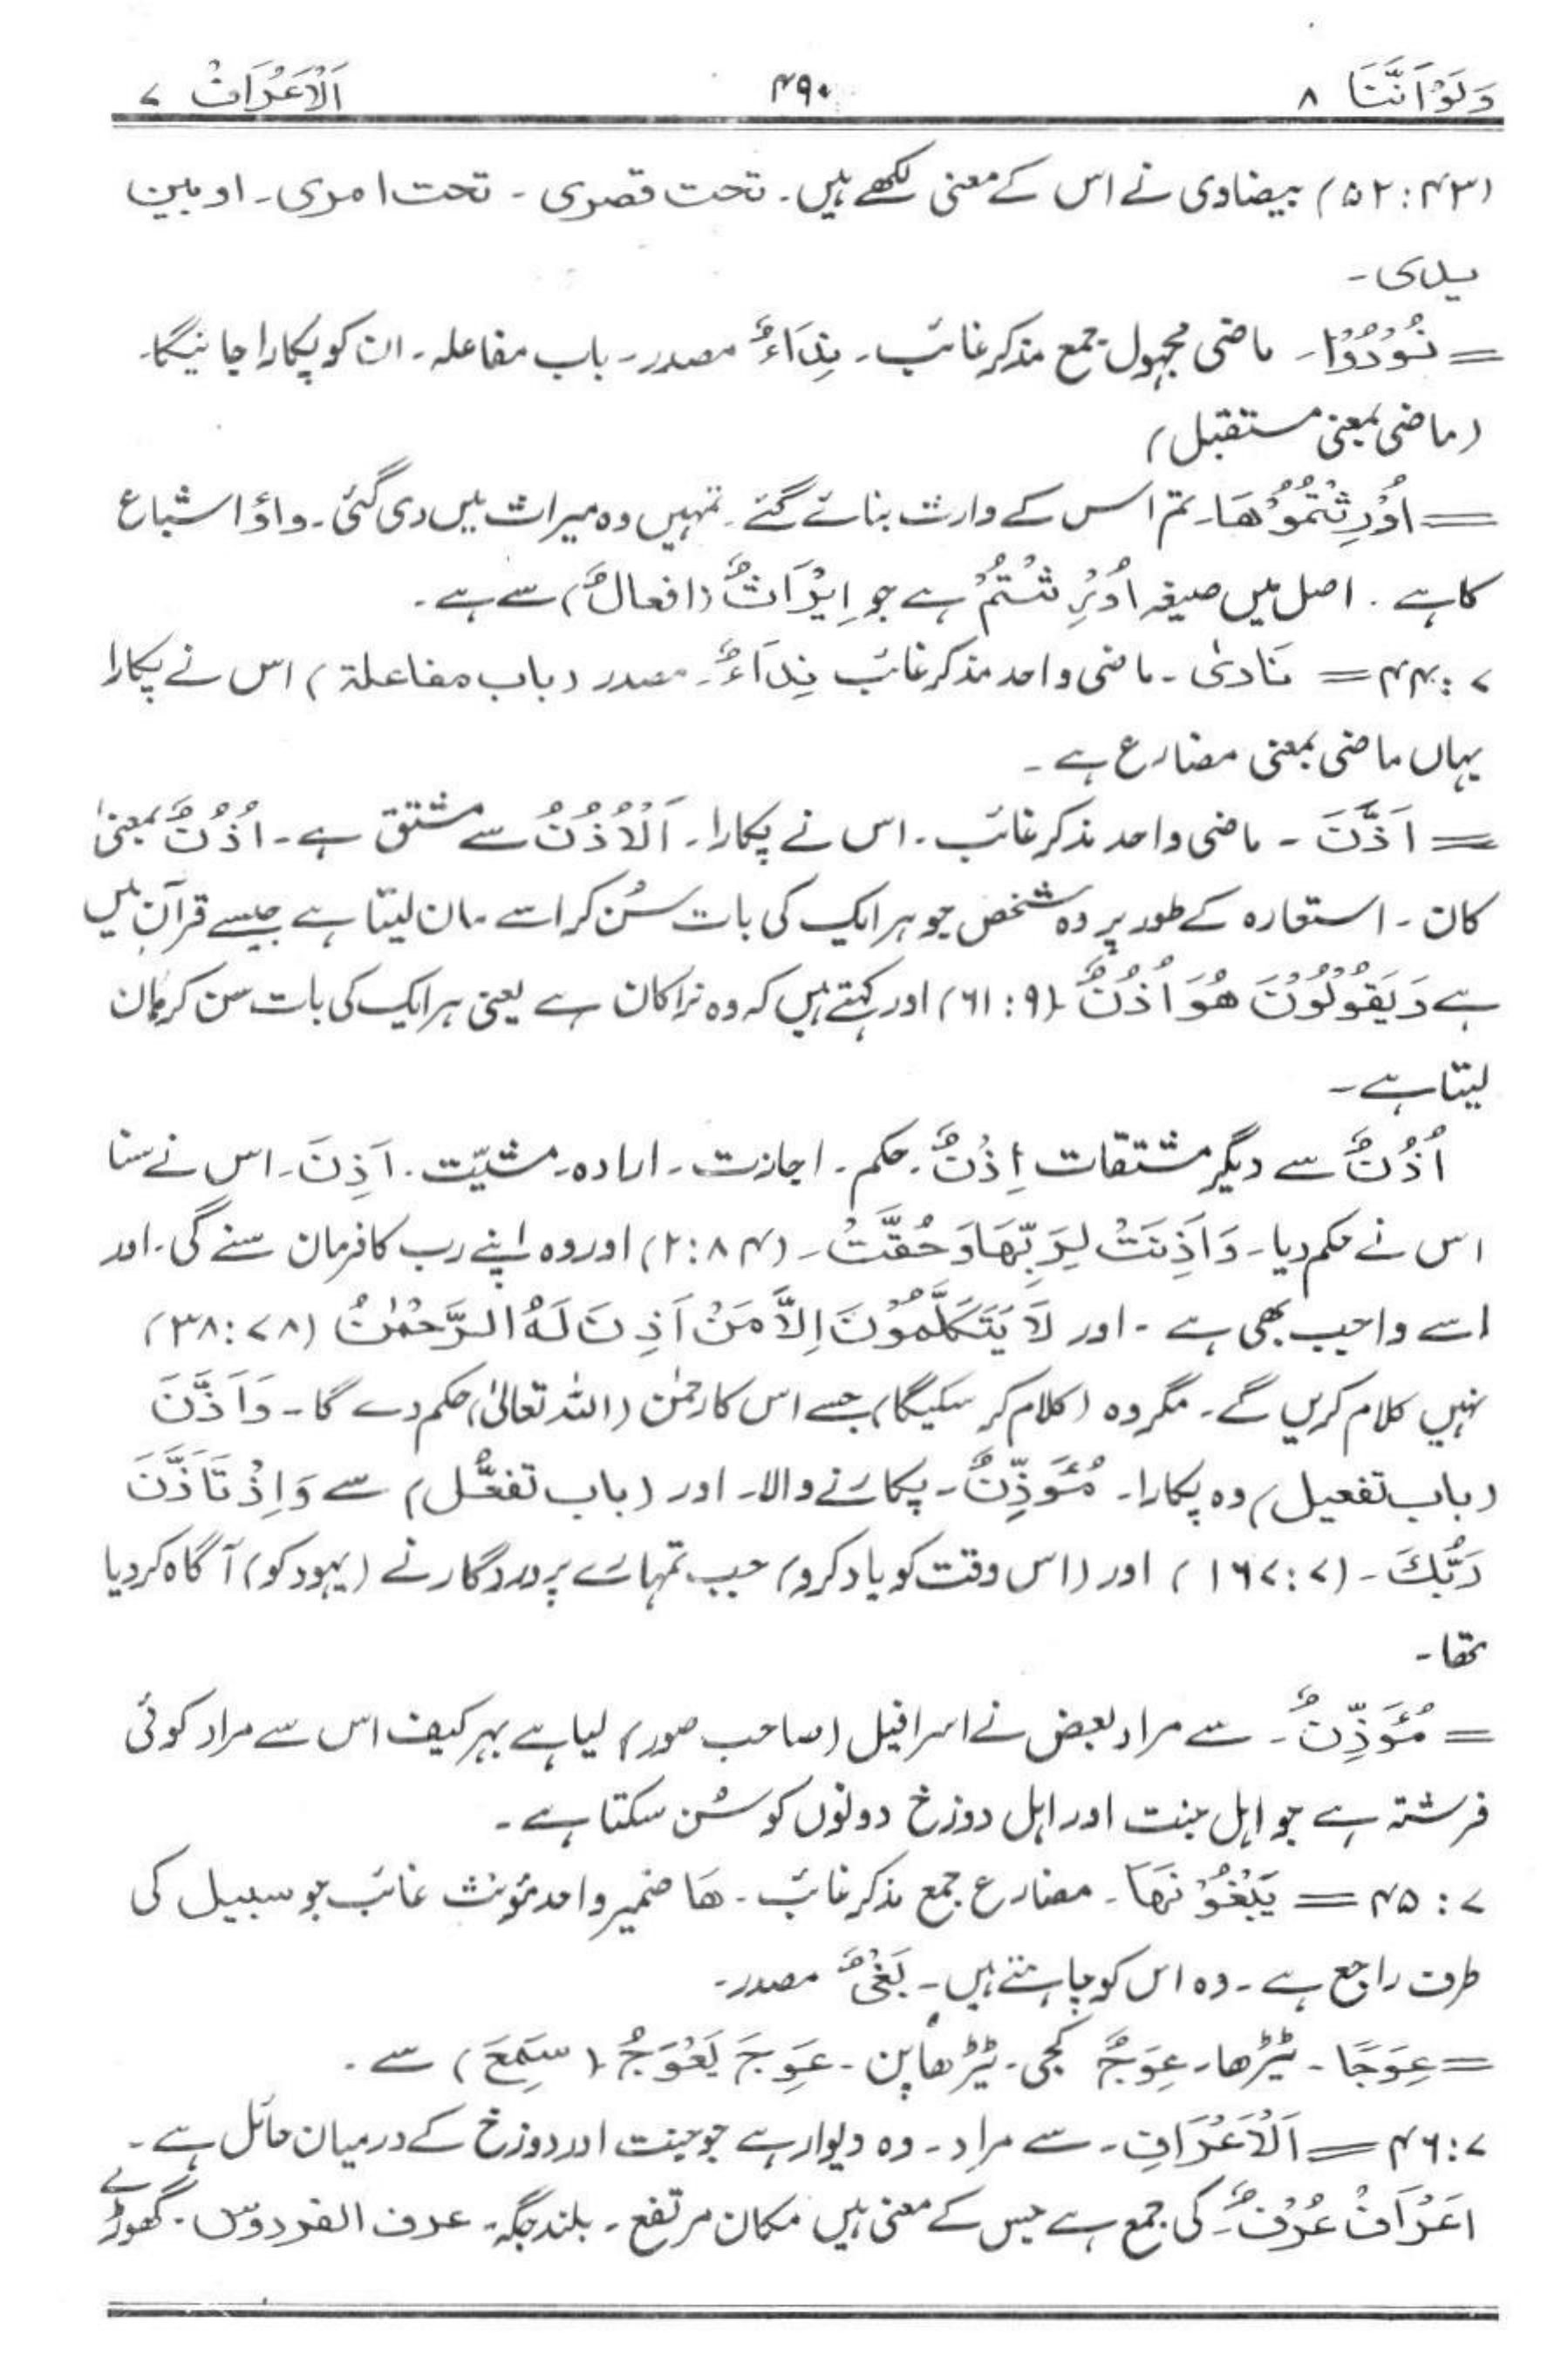 وَلَوْ اَنَّنَا ۸ ۴۹۰ اَلْاَعْرَافْ ۷
(۴۳: ۵۲) بیضاوی نے اس کے معنی لکھے ہیں۔ تحت قصری۔ تحت امری۔ او بین
یدی۔
= نُوْدُوْا۔ ماضی مجہول جمع مذکر غائب۔ نِدَاءٌ مصدر۔ باب مفاعلہ۔ ان کو پکارا جائیگا۔
(ماضی بمعنی مستقبل)
= اُوْرِثْتُمُوْهَا۔ تم اس کے وارث بنائے گئے۔ تمہیں وہ میراث میں دی گئی۔ واؤ اشباع
کا ہے۔ اصل میں صیغہ اُوْرِثْتُمْ ہے جو اِیْرَاثٌ (افعالٌ) سے ہے۔
۷: ۴۴ = نَادیٰ۔ ماضی واحد مذکر غائب نِدَاءٌ۔ مصدر (باب مفاعلة) اس نے پکارا
یہاں ماضی بمعنی مضارع ہے۔
= اَذَّنَ۔ ماضی واحد مذکر غائب۔ اس نے پکارا۔ اَلْاُذُنُ سے مشتق ہے۔ اُذُنٌ بمعنیٰ
کان۔ استعارہ کے طور پر وہ شخص جو ہر ایک کی بات سُن کر اسے مان لیتا ہے جیسے قرآن میں
ہے وَیَقُوْلُوْنَ هُوَ اُذُنٌ (۹: ۶۱) اور کہتے ہیں کہ وہ نرا کان ہے یعنی ہر ایک کی بات سن کر مان
لیتا ہے۔
اُذُنٌ سے دیگر مشتقات اِذْنٌ۔ حکم۔ اجازت۔ ارادہ۔ مشیّت۔ اَذِنَ۔ اس نے سنا
اس نے حکم دیا۔ وَاَذِنَتْ لِرَبِّهَا وَحُقَّتْ۔ (۸۴: ۲) اور وہ اپنے رب کا فرمان سنے گی۔ اور
اسے واجب بھی ہے۔ اور لَا یَتَکَلَّمُوْنَ اِلَّا مَنْ اَذِنَ لَهُ الرَّحْمٰنُ (۷۸: ۳۸)
نہیں کلام کریں گے۔ مگر وہ (کلام کر سکیگا) جسے اس کا رحمٰن (اللہ تعالیٰ) حکم دے گا۔ وَاَذَّنَ
(باب تفعیل) وہ پکارا۔ مُؤَذِّنٌ۔ پکارنے والا۔ اور (باب تفعُّل) سے وَاِذْ تَاَذَّنَ
رَبُّكَ۔ (۷: ۱۶۷) اور (اس وقت کو یاد کرو) جب تمہارے پروردگار نے (یہود کو) آگاہ کر دیا
تھا۔
= مُؤَذِّنٌ۔ سے مراد بعض نے اسرافیل (صاحب صور) لیا ہے بہر کیف اس سے مراد کوئی
فرشتہ ہے جو اہل جنت اور اہل دوزخ دونوں کو سُن سکتا ہے۔
۷: ۴۵ = یَبْغُوْنَهَا۔ مضارع جمع مذکر غائب۔ هَا ضمیر واحد مؤنث غائب جو سبیل کی
طرف راجع ہے۔ وہ اس کو چاہتے ہیں۔ بَغْیٌ مصدر۔
= عِوَجًا۔ ٹیڑھا۔ عِوَجٌ کجی۔ ٹیڑھاپن۔ عَوِجَ یَعْوَجُ (سَمِعَ) سے۔
۷: ۴۶ = اَلْاَعْرَافِ۔ سے مراد۔ وہ دیوار ہے جو جنت اور دوزخ کے درمیان حائل ہے۔
اَعْرَافٌ عُرْفٌ۔ کی جمع ہے جس کے معنی ہیں مکان مرتفع۔ بلند جگہ۔ عرف الفردوس۔ گھوڑے